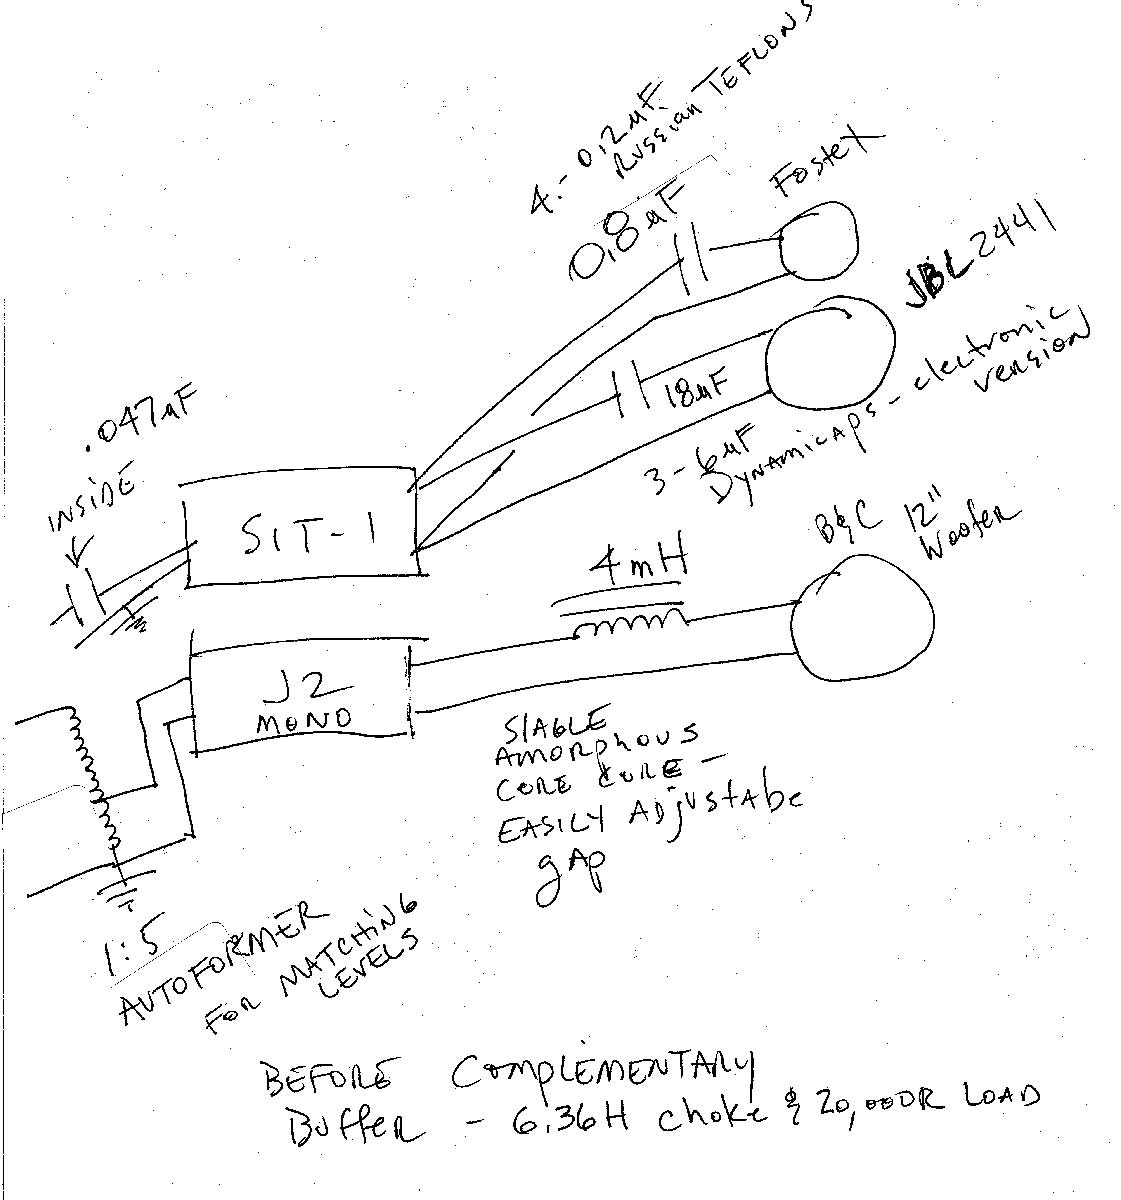 4.- 0,2µF
Russian TEFLONS
0.8µF
Fostex
JBL 2441
18µF
3-6µF
Dynamicaps - electronic
version
.047µF
INSIDE
SIT-1
B&C 12"
Woofer
4mH
J2
MONO
AMORPHOUS
CORE CORE -
EASILY ADjustAbe
gAp
1:5
AUTOFORMER
FOR MATCHING
LEVELS
BEFORE COMPLEMENTARY
BuffER - 6.36H choke & 20,000R LOAD